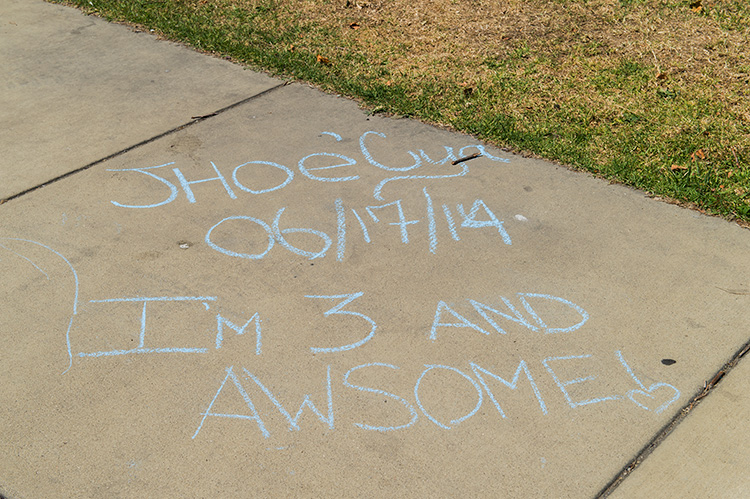 JHOè Cya
06/17/14
I'm 3 AND
AWSOME!